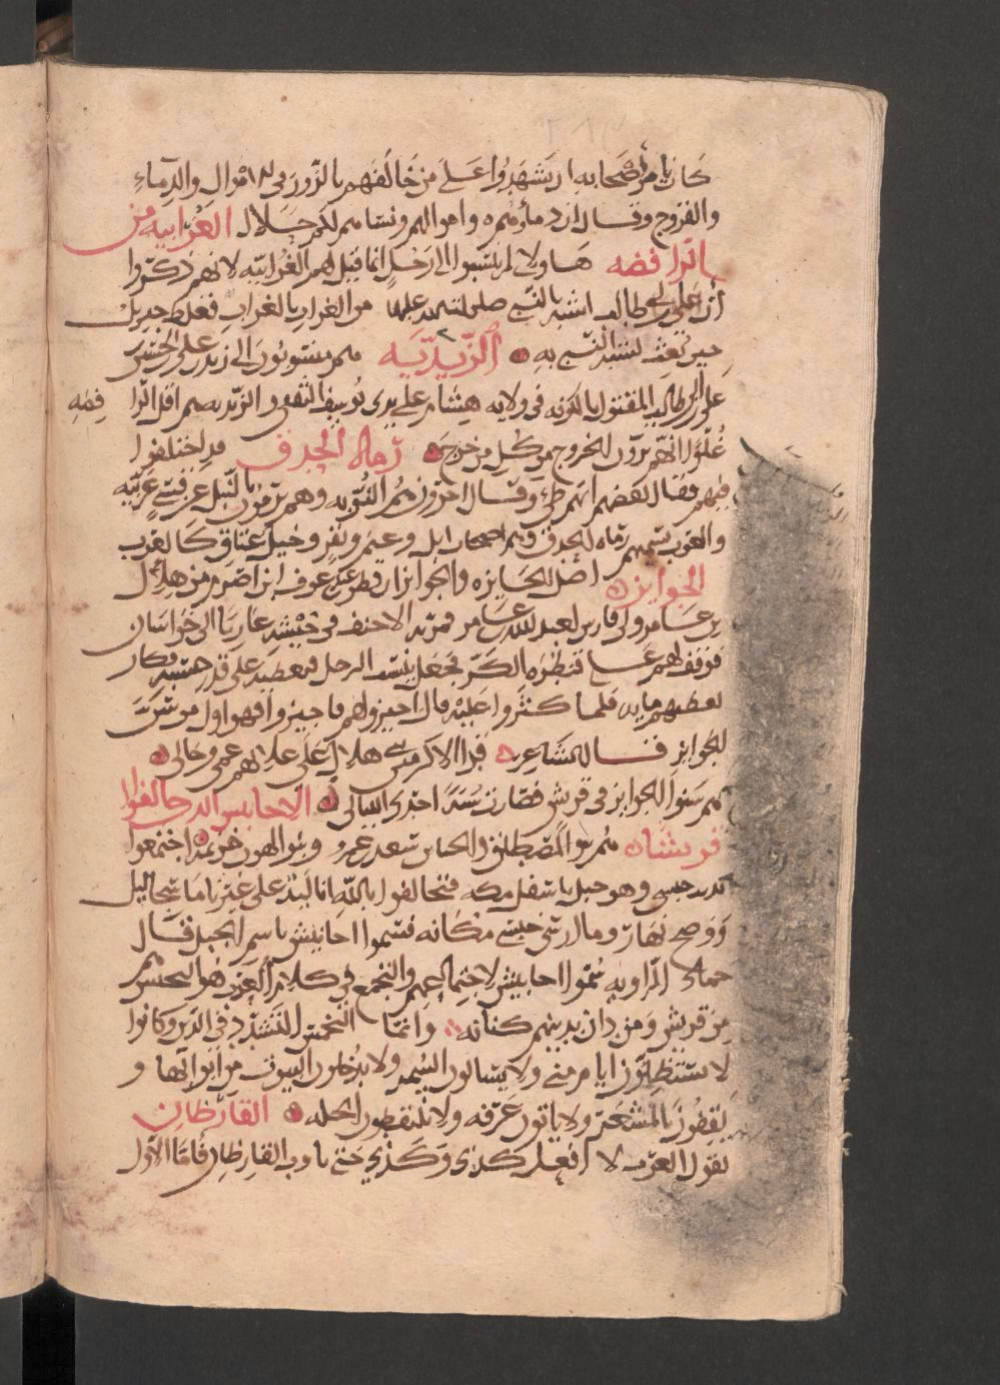 كان يامر اصحابه ان يشهدوا على من خالفهم بالزور في الاموال والدماء
والفروج وقال ان دماءهم واموالهم ونساءهم لكم حلال الغرابيه من
الرافضه هاولاء لم ينسبوا الى رجل انما قيل لهم الغرابيه لانهم ذكروا
أن علي بن ابي طالب اشبه بالنبي صلى الله عليهما من الغراب بالغراب فغلط جبريل
حين بعث لشبه النبي به الزيديه هم منسوبون الى زيد بن علي بن الحسين
علي بن ابي طالب المقتول بالكوفه في ولايه هشام على يدي يوسف الثقفي والزيديه هم اقل الرا فضه
غلوا انهم يرون الخروج مع كل من خرج رماه الحدق قد اختلفوا
فيهم فقال بعضهم انهم طي وقال اخرون هم النوبه وهم يرمون بالنبل عن قسي عربيه
والعرب تسميهم رماه الحدق وهم اصحاب ابل وغنم وبقر وخيل عتاق كالعرب
الجوايز اصل الجايزه والجوايز ان قطن بن عبد عوف ابن اصرم من هلال
بن عامر ولي فارس لعبد الله بن عامر فمر به الاحنف في جيشه غازيا الى خراسان
فوقف لهم على قنطره الكر فجعل ينسب الرجل فيعطيه على قدر حسبه فكان
يعطيهم مايه فلما كثروا عليه قال اجيزوهم فاجيزوا فهو اول من سن
الجوايز قال الشاعر فدا الاكرمين بني هلال على علاتهم عمي وخالي
هم سنوا الجوايز في قريش فصارت سنة اخرى الليالي الاحابيش الذين حالفوا
قريشا هم بنو المصطلق والحيا بن سعد بن عمرو وبنو الهون بن خزيمه اجتمعوا
بذنب حبشي وهو جبل باسفل مكه فتحالفوا بالله انا ليد على غيرنا ما سجا ليل
ووضح نهار وما ارسى حبشي مكانه فسموا احابيش باسم الجبل قال
حماد الراويه سموا احابيش لاجتماعهم والتجمع في كلام العرب هو التحبش هم
من قريش ومن دان بدينهم كنانه وانما التحمس التشدد في الدين وكانوا
لا يستظلون ايام منى ولا يسلون السمن ولا يدخلون البيوت من ابوابها و
يقفون بالمشعر ولا ياتون عرفه ولا يلتقطون الجله القارظان
تقول العرب لا افعل كذى وكذى حتى ياوب القارظان فاما الاول